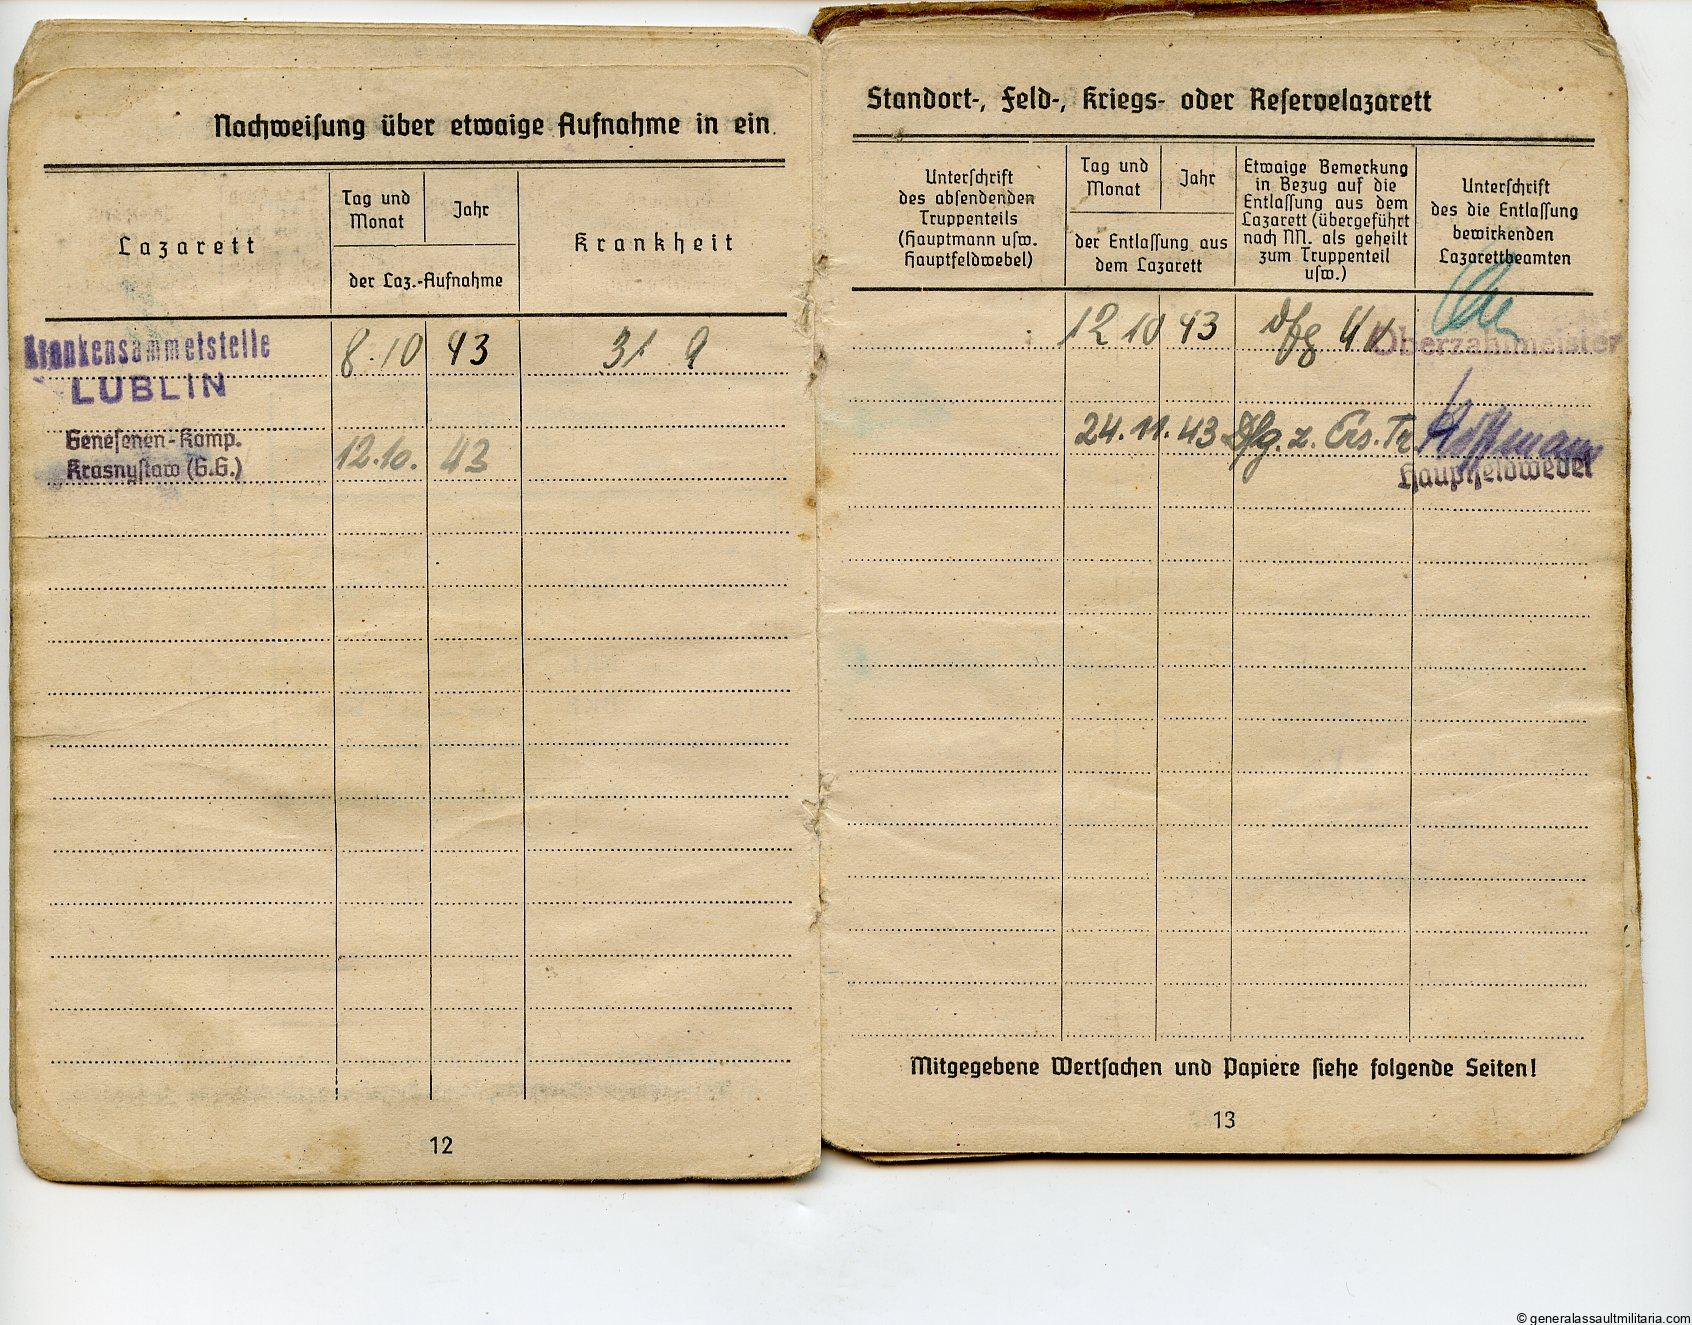 Nachweisung über etwaige Aufnahme in ein
Lazarett
Tag und
Monat
Jahr
der Laz.-Aufnahme
Krankheit
Krankensammelstelle
LUBLIN
8.10 43
31 9
Genesenen-Komp.
Krasnystaw (G.G.)
12.10. 43
12
Standort-, Feld-, Kriegs- oder Reservelazarett
Unterschrift
des absendenden
Truppenteils
(Hauptmann usw.
Hauptfeldwebel)
Tag und
Monat
Jahr
der Entlassung aus
dem Lazarett
Etwaige Bemerkung
in Bezug auf die
Entlassung aus dem
Lazarett (übergeführt
nach NN. als geheilt
zum Truppenteil
usw.)
Unterschrift
des die Entlassung
bewirkenden
Lazarettbeamten
12 10 43
Oberzahlmeister
24.11.43 Dfg. z. Ers. Tr
Hoffmann
Hauptfeldwebel
Mitgegebene Wertsachen und Papiere siehe folgende Seiten!
13
© generalassaultmilitaria.com